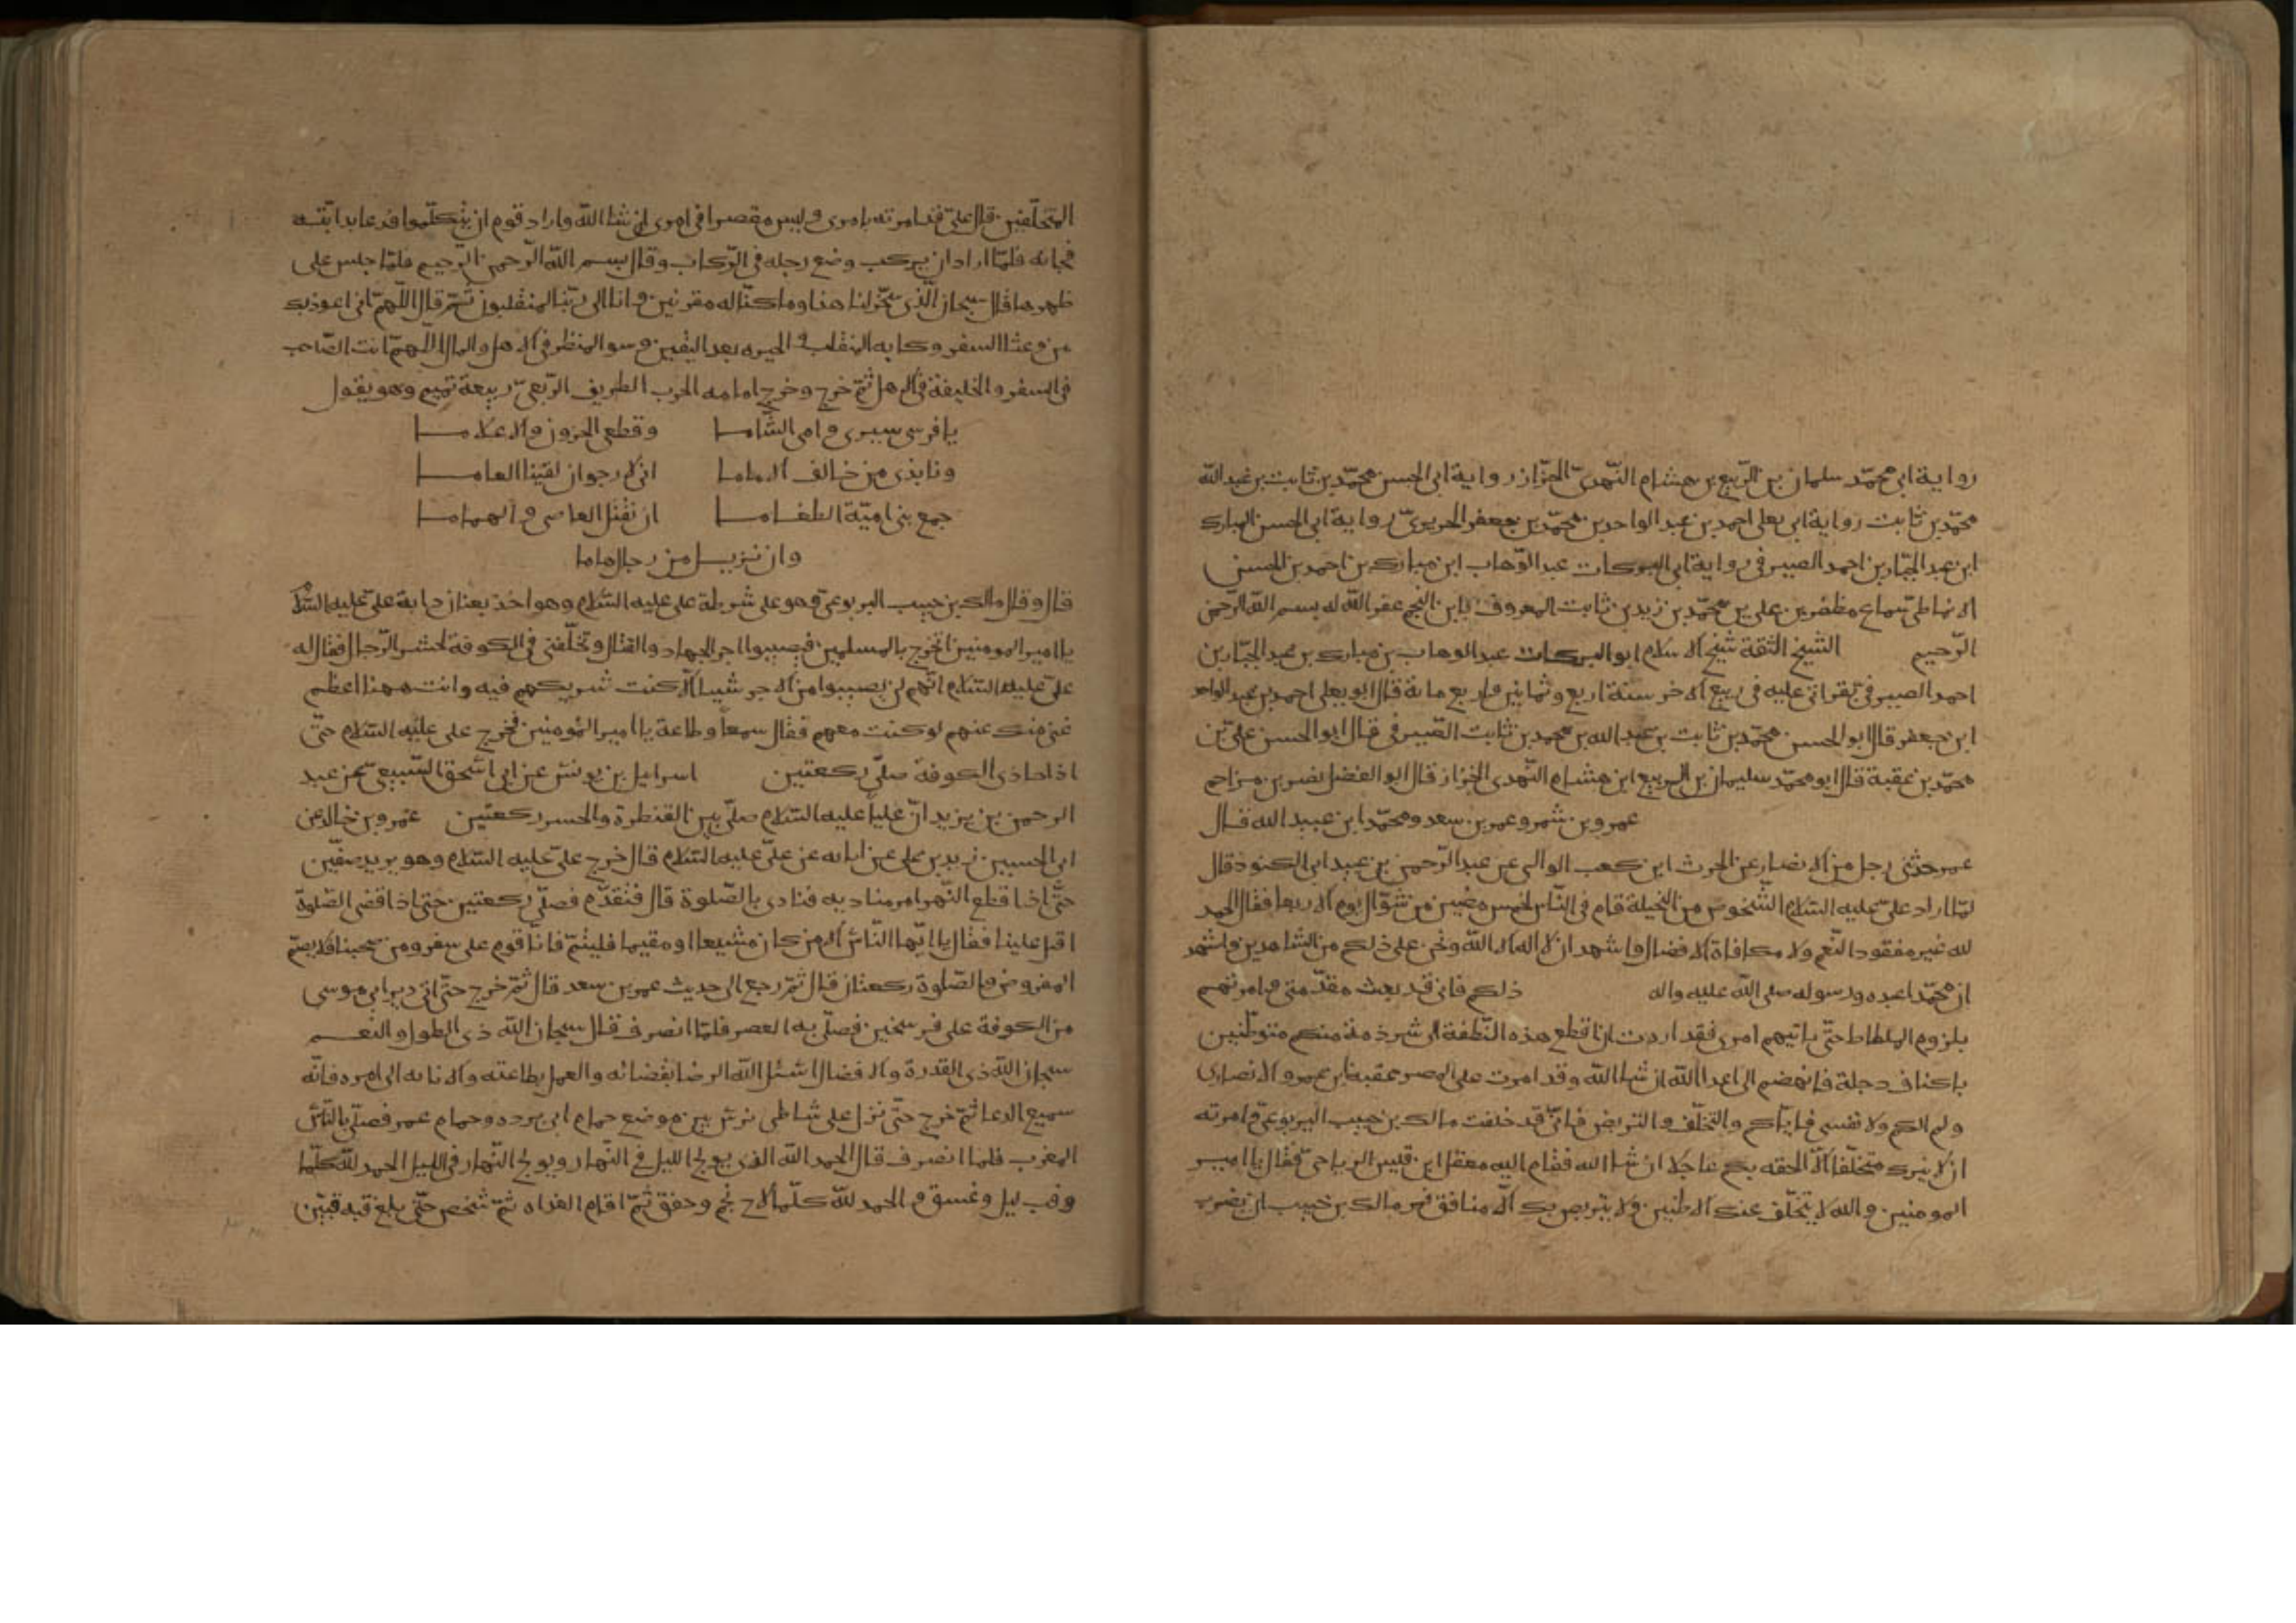 رواية ابى محمّد سلمان بن الرّبيع بن هشام النّهدىّ الخزّاز رواية ابى الحسن محمّد بن ثابت بن عبدالله
محمّد بن ثابت رواية ابى يعلى احمد بن عبد الواحد بن محمّد بن جعفر الحريرىّ رواية ابى الحسن المبارك
ابن عبد الجبّار بن احمد الصيرفى رواية ابى البركات عبد الوّهاب ابن مبارك بن احمد بن الحسن
الانماطىّ سماع مظفر بن على بن محمّد بن زيد بن ثابت المعروف بابن المنجم غفر الله له بسم الله الرّحمن
الرّحيم الشيخ الثقة شيخ الاسلام ابو البركات عبد الوهاب بن مبارك بن عبد الجبّار بن
احمد الصيرفى بقراتى عليه فى ربيع الاخر سنة اربع وثمانين واربع مائة قال ابو يعلى احمد بن عبد الواحد
ابن جعفر قال ابو الحسن محمّد بن ثابت بن عبد الله بن محمد بن ثابت الصّيرفى قال ابو الحسن علىّ بن
محمّد بن عقبة قال ابو محمّد سليمان بن الربيع ابن هشام النّهدى الخزاز قال ابو الفضل نصر بن مزاحم
عمرو بن شمر وعمر بن سعد ومحمّد ابن عبيد الله قال
عمر حدثنى رجل من الانصار عن الحرث ابن كعب الوالى عن عبد الرّحمن بن عبيد ابى الكنود قال
لمّا اراد علىّ عليه السّلام الشّخوص من النّخيلة قام فى النّاس لخمس مضين من شوّال يوم الاربعا فقال الحمد
لله غير مفقود النّعم ولا مكافاة الافضال واشهد ان لا اله الا الله ونحن على ذلكم من الشاهدين واشهد
ان محمّدا عبده ورسوله صلى الله عليه واله ذلكم فانى قد بعثت مقدّمتى وامرتهم
بلزوم الملطاط حتّى ياتيهم امرى فقد اردت ان اقطع هذه النّطفة الى شرذمة منكم متوطّنين
باكناف دجلة فانهضهم الى اعدا الله ان شا الله وقد امرت على المصر عقبة بن عمرو الانصارى
ولم الكم ولا نفسى فايّاكم والتخلّف والتربص فانّى قد خلفت مالك بن حبيب اليربوعىّ وامرته
ان لا يترك متخلّفا الّا الحقه بكم عاجلا ان شا الله فقام اليه معقل ابن قيس الرياحىّ فقال يا امير
المومنين والله لا يتخلّف عنك الا ظنين ولا يتربص بك الّا منافق فمر مالك بن حبيب ان يضرب
المتخلّفين قال علىّ قد امرته بامرى وليس مقصرا فى امرى ان شا الله واراد قوم ان يتكلّموا فدعا بدابّته
فجاته فلمّا اراد ان يركب وضع رجله فى الرّكاب وقال بسم الله الرّحمن الرّحيم فلمّا جلس على
ظهرها قال سبحان الّذى سخّر لنا هذا وما كنّا له مقرنين وانا الى ربّنا لمنقلبون ثمّ قال اللّهمّ انى اعوذ بك
من وعثا السفر وكابه المنقلب و الحيره بعد اليقين وسو المنظر فى الاهل والمال اللّهمّ انت الصّاحب
فى السفر والخليفة فى الاهل ثمّ خرج وخرج امامه الحرب الطريف الرّبعىّ ربيعة تميم وهو يقول
يا فرسى سيرى وامى الشّاما وقطعى الحزون والاعلاما
ونابذى من خالف الاماما انى لارجو ان لقينا العاما
جمع بنى اميّة الطغاما ان نقتل العاصى والهماما
وان نزيل من رجال هاما
قال وقال مالك بن حبيب اليربوعىّ وهو على شرطة على عليه السّلام وهو اخذ بعنان دابة علىّ عليه السّلام
يا امير المومنين اتخرج بالمسلمين فيصيبوا اجر الجهاد والقتال وتخلّفنى فى الكوفة لحشر الرّجال فقال له
علىّ عليه السّلام انّهم لن يصيبوا من الاجر شيا الّا كنت شريكهم فيه وانت ههنا اعظم
غنى منك عنهم لو كنت معهم فقال سمعا وطاعة يا امير المؤمنين فخرج على عليه السّلام حتّى
اذا حاذى الكوفة صلّى ركعتين اسرايل بن يونس عن ابى اسحق السّبيعى عن عبد
الرحمن بن يزيد انّ عليّا عليه السّلام صلّى بين القنطرة والجسر ركعتين عمرو بن خالد عن
ابى الحسين زيد بن على عن ابائه عن علىّ عليه السّلام قال خرج علىّ عليه السّلام وهو يريد صفّين
حتّى اذا قطع النّهر امر مناديه فنادى بالصّلوة قال فتقدّم فصلّى ركعتين حتى اذا قضى الصّلوة
اقبل علينا فقال يا ايّها النّاس الا من كان مشيعا او مقيما فليتمّ فانّا قوم على سفر ومن صحبنا فلا يصم
المفروض والصّلوة ركعتان قال ثمّ رجع الى حديث عمر بن سعد قال ثمّ خرج حتّى اتى دير ابى موسى
من الكوفة على فرسخين فصلّى به العصر فلمّا انصرف قال سبحان الله ذى الطول والنعم
سبحان الله ذى القدرة والافضال اسئل الله الرضا بقضائه والعمل بطاعته والانابه الى امره فانّه
سميع الدعا ثمّ خرج حتّى نزل على شاطى نرس بين موضع حمام ابى برده وحمام عمر فصلّى بالنّاس
المغرب فلما انصرف قال الحمد الله الذى يولج الليل فى النّهار ويولج النّهار فى الليل الحمد لله كلّما
وقب ليل وغسق و الحمد لله كلّما لاح نجم وخفق ثمّ اقام الغداه ثمّ شخص حتّى بلغ قبه قبّين